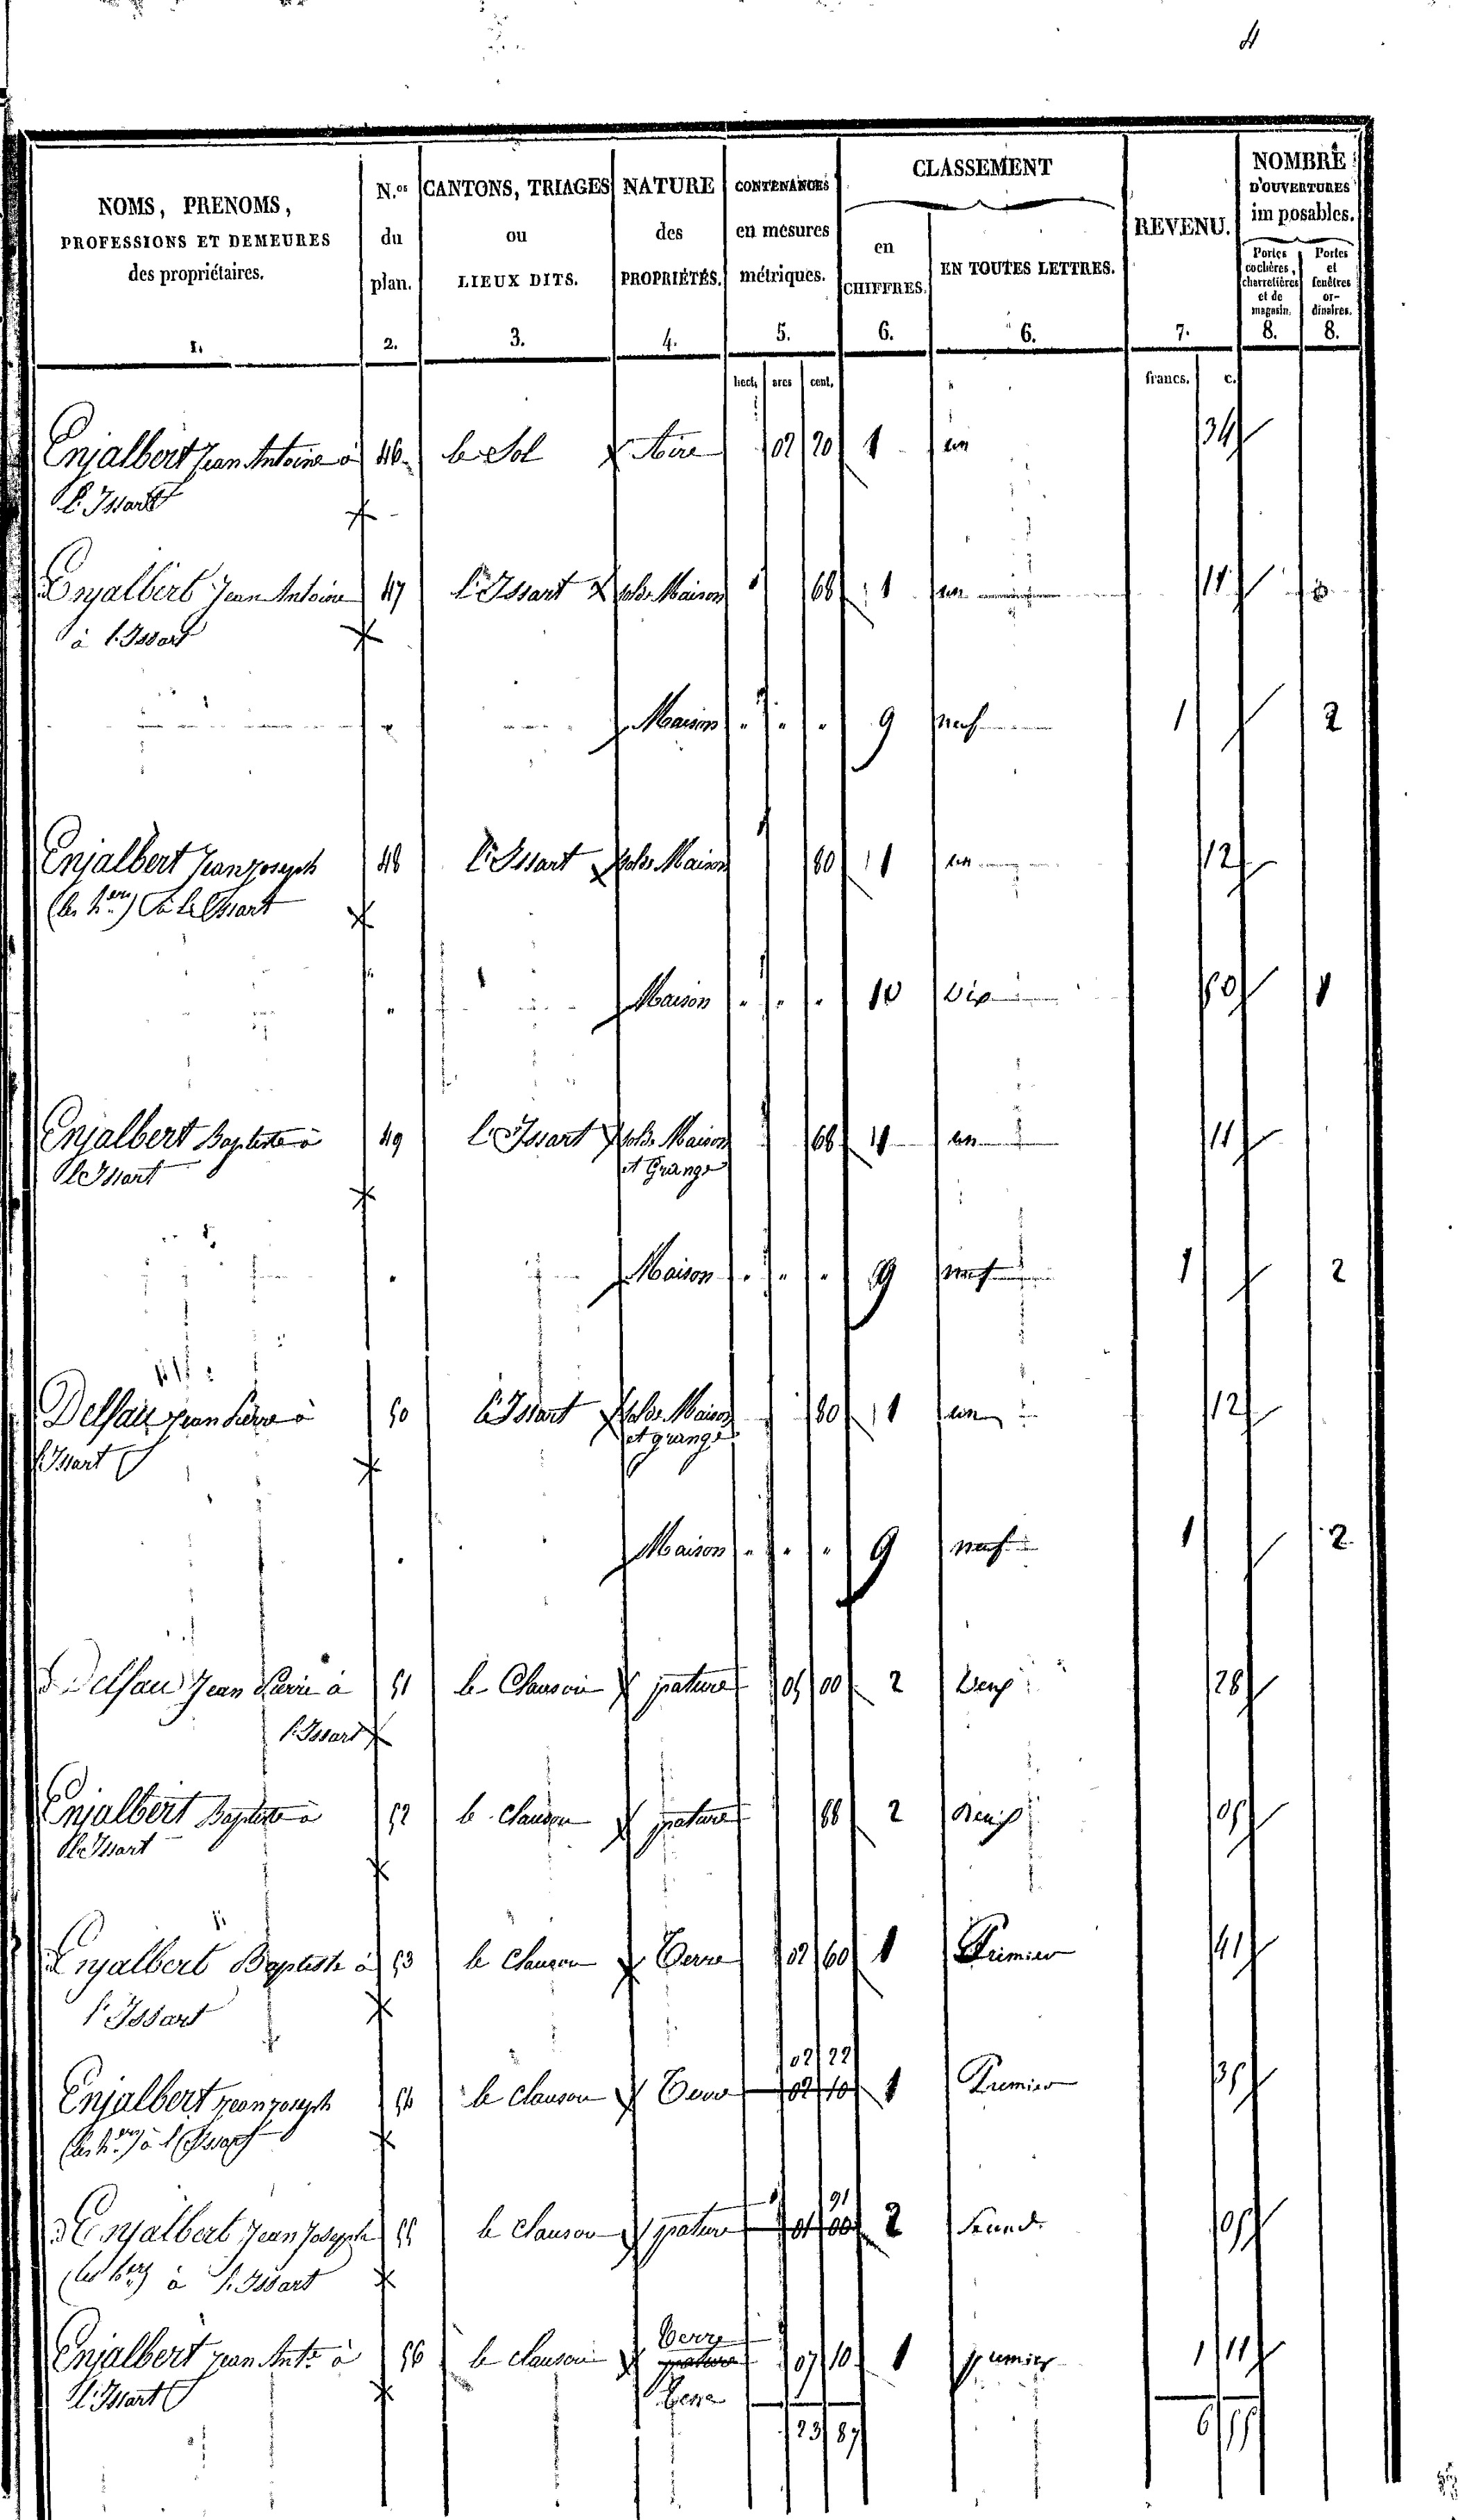 4
NOMS, PRENOMS, PROFESSIONS ET DEMEURES des propriétaires. 1.
N.os du plan. 2.
CANTONS, TRIAGES ou LIEUX DITS. 3.
NATURE des PROPRIÉTÉS. 4.
CONTENANCES en mesures métriques. 5.
CLASSEMENT
en CHIFFRES. 6.
EN TOUTES LETTRES. 6.
REVENU. 7.
NOMBRE D'OUVERTURES imposables.
Portes cochères, charretières et de magasin. 8.
Portes et fenêtres ordinaires. 8.
hect. ares cent. francs. c.
Enjalbert Jean Antoine à 46 le Sol Aire 02 20 1 un 34
l'Issart
Enjalbert Jean Antoine 47 l'Issart sol de Maison 68 1 un 11
à l'Issart
Maison 9 neuf 1 2
Enjalbert Jean Joseph 48 l'Issart sol de Maison 80 1 un 12
(les h.ers) à l'Issart
Maison 10 Dix 1
Enjalbert Baptiste à 49 l'Issart sol de Maison 68 1 un 11
l'Issart et Grange
Maison 9 neuf 1 2
Delsau Jean Pierre à 50 l'Issart sol de Maison 80 1 un 12
l'Issart et grange
Maison 9 neuf 1 2
Delsau Jean Pierre à 51 le Clauson pature 05 00 2 Deux 28
l'Issart
Enjalbert Baptiste à 52 le clauson pature 88 2 Deux 05
l'Issart
Enjalbert Baptiste à 53 le Clauson Terre 02 60 1 Premier 41
l'Issart
02 22
Enjalbert Jean Joseph 54 le clauson Terre 02 10 1 Premier 35
(les h.ers) à l'Issart
91
Enjalbert Jean Joseph 55 le clauson pature 01 00 2 Second 05
(les hers) à l'Issart
Terre
Enjalbert Jean Ant.e à 56 le clauson pature 07 10 1 premier 1 11
l'Issart Terre
23 87 6 55